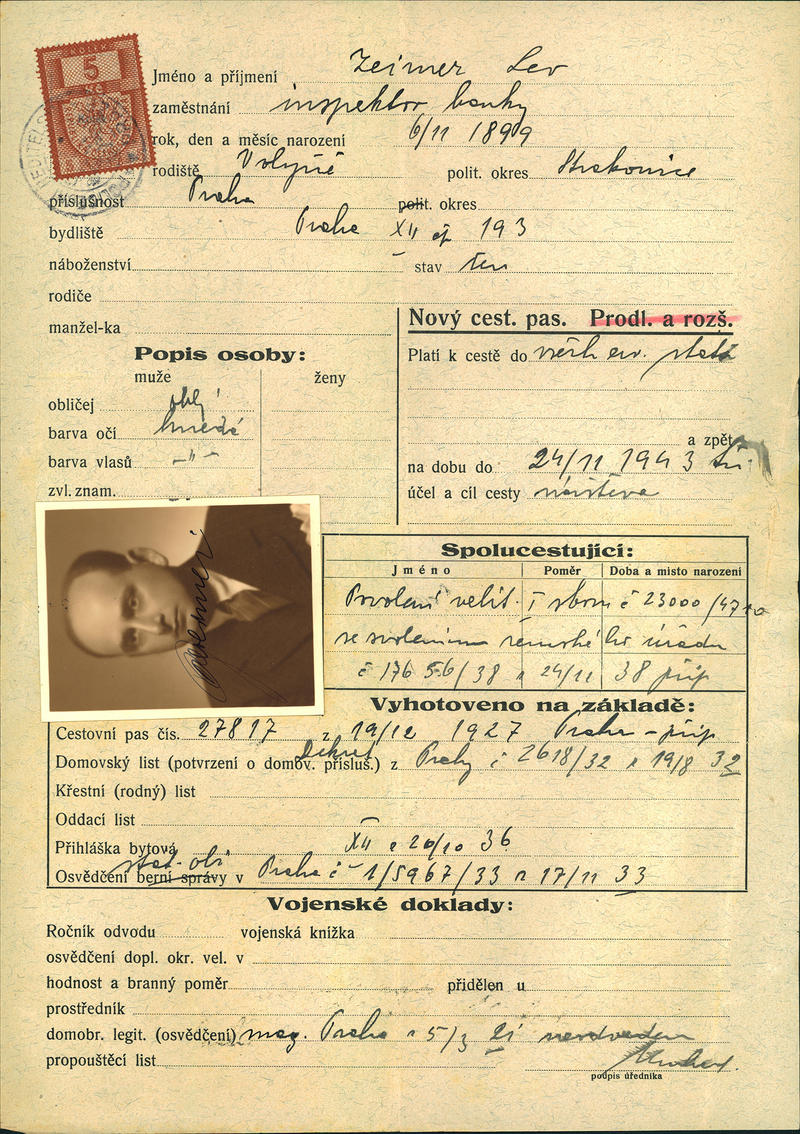 KOLEK
5
Kč
Jméno a příjmení Zeimer Lev
zaměstnání inspektor banky
rok, den a měsíc narození 6/11 1899
rodiště Volyně polit. okres Strakonice
příslušnost Praha polit. okres
bydliště Praha XII čp 193
náboženství stav žen
rodiče
manžel-ka
Nový cest. pas. Prodl. a rozš.
Platí k cestě do všech ev. států
a zpět
na dobu do 24/11 1943
účel a cíl cesty návštěva
Popis osoby:
muže ženy
obličej oblý
barva očí hnedé
barva vlasů –"–
zvl. znam.
Spolucestující:
Jméno Poměr Doba a místo narození
Povolení velit. I sboru č 23000/47
se svolením zemské úřadu
č 176 56/38 z 24/11 38 přip
Vyhotoveno na základě:
Cestovní pas čís. 27817 z 19/12 1927 Praha – přip
dekret
Domovský list (potvrzení o domov. přísluš.) z Prahy č 2618/32 z 19/8 32
Křestní (rodný) list
Oddací list
Přihláška bytová XII z 20/10 36
stát. obč
Osvědčení berní správy v Praha č 1/5967/33 z 17/11 33
Vojenské doklady:
Ročník odvodu vojenská knížka
osvědčení dopl. okr. vel. v
hodnost a branný poměr přidělen u
prostředník
domobr. legit. (osvědčení) mag. Praha z 5/3 21 neodveden
propouštěcí list
podpis úředníka